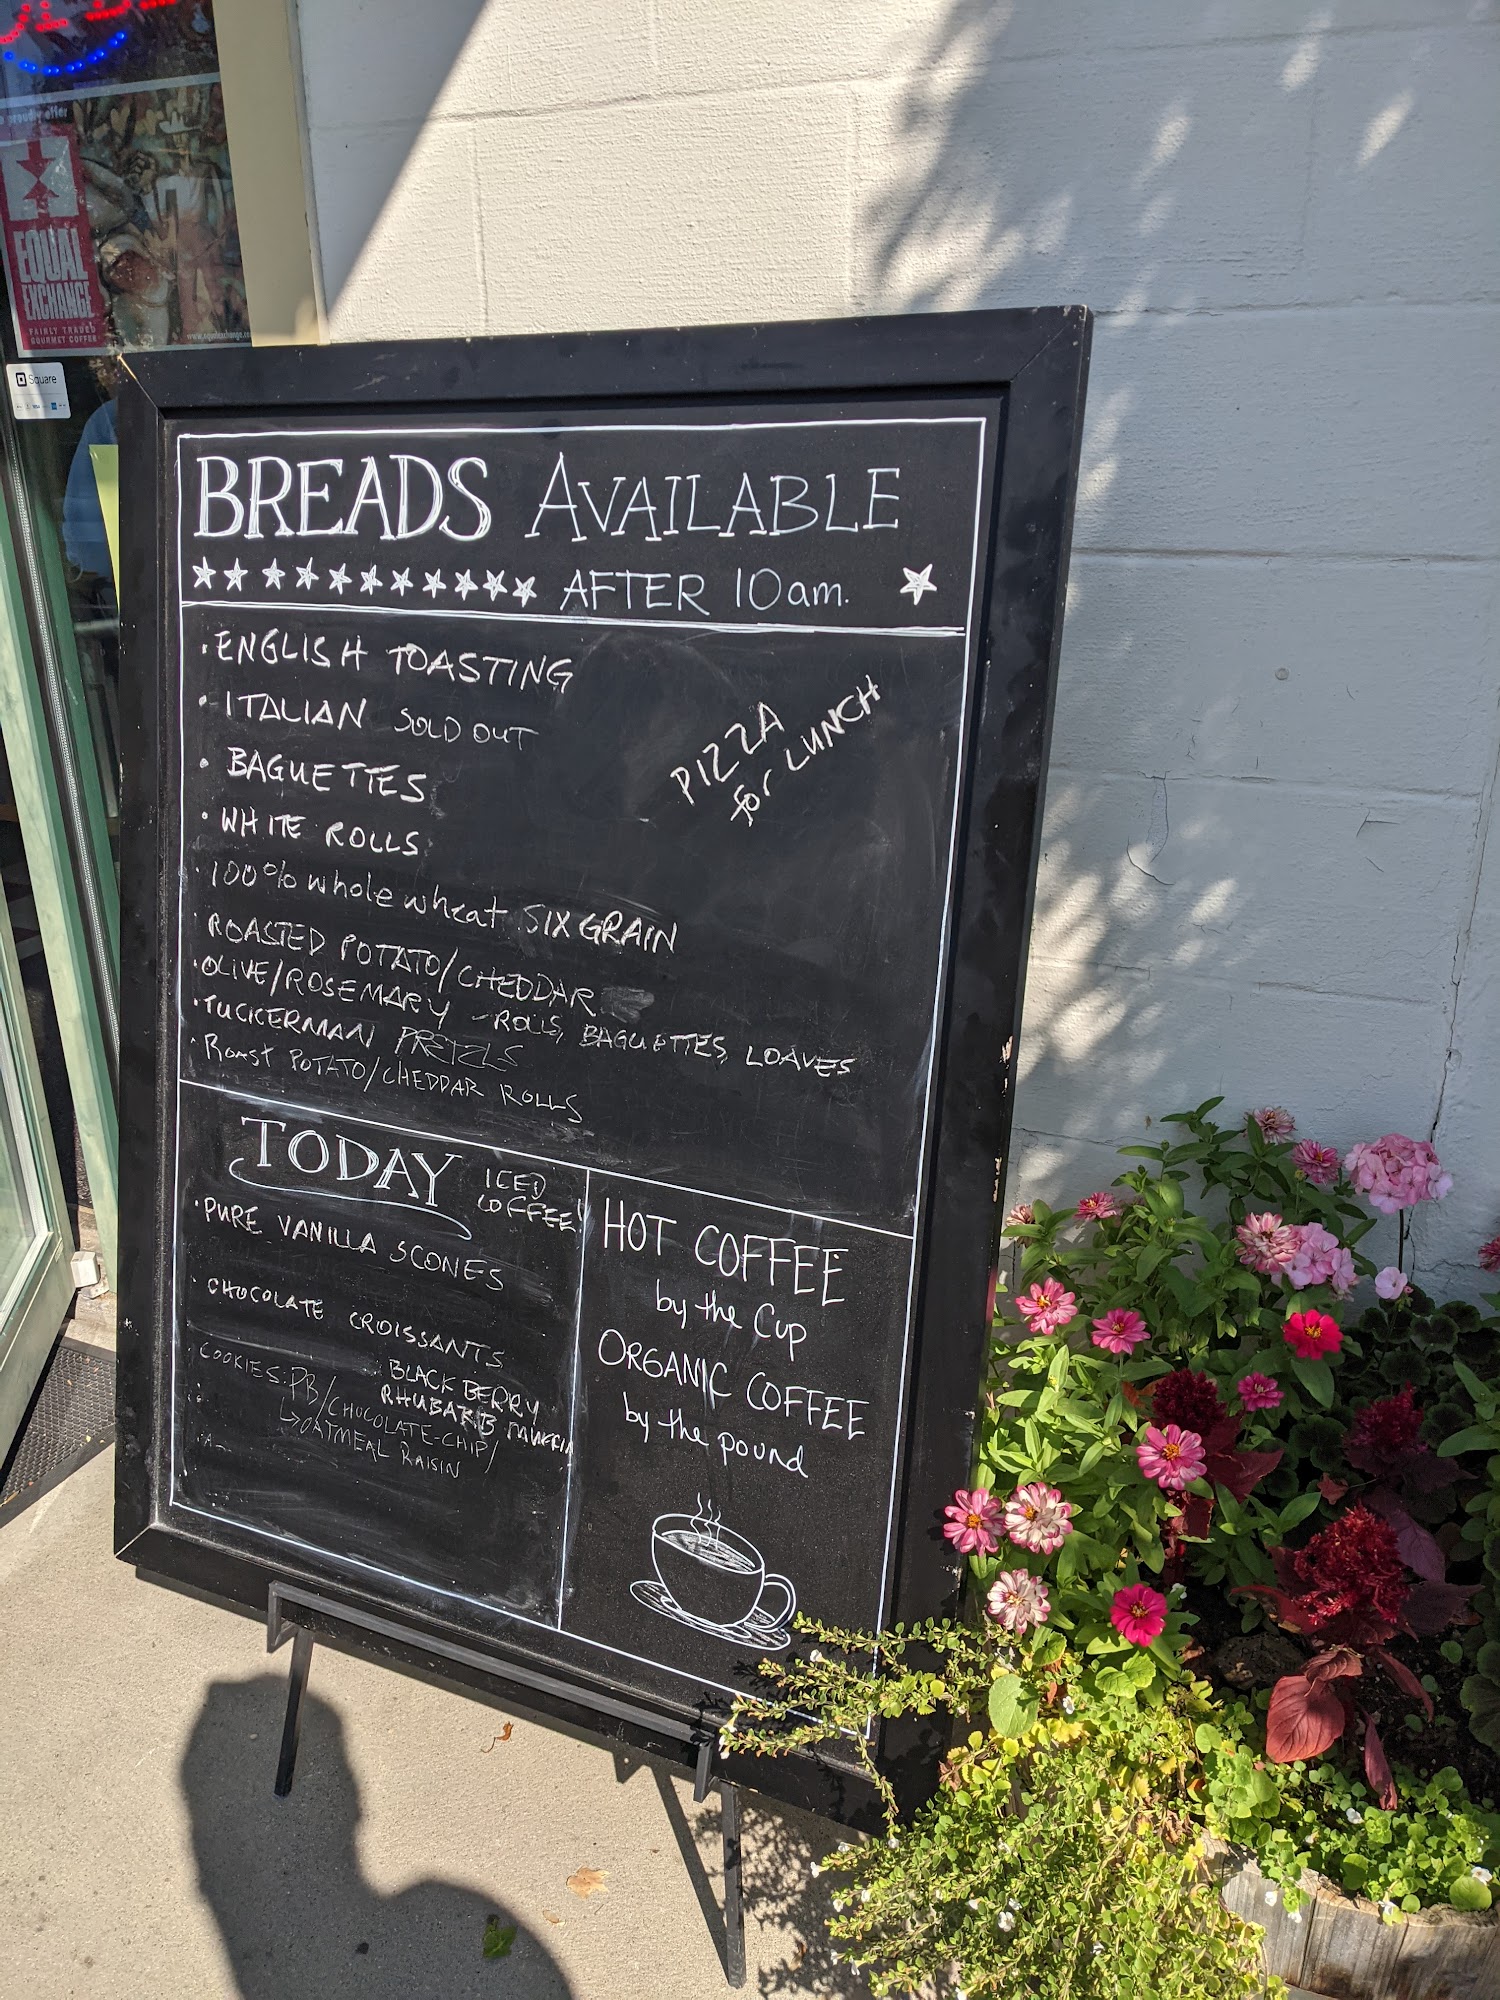 proudly offer
EQUAL
EXCHANGE
FAIRLY TRADED
GOURMET COFFEE
Square
BREADS AVAILABLE
AFTER 10am.
• ENGLISH TOASTING
• ITALIAN SOLD OUT
• BAGUETTES
• WHITE ROLLS
PIZZA
for LUNCH
• 100% whole wheat SIX GRAIN
• ROASTED POTATO/CHEDDAR
• OLIVE/ROSEMARY - ROLLS, BAGUETTES, LOAVES
• TUCKERMAN PRETZLS
• ROAST POTATO/CHEDDAR ROLLS
TODAY
ICED
COFFEE!
• PURE VANILLA SCONES
• CHOCOLATE CROISSANTS
BLACKBERRY
RHUBARB MUFFIN
• COOKIES: PB/CHOCOLATE-CHIP/
↳ OATMEAL RAISIN
HOT COFFEE
by the Cup
ORGANIC COFFEE
by the pound